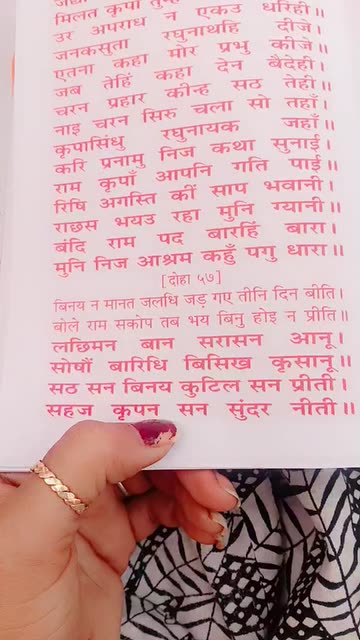 मिलत कृपा तुम्ह
उर अपराध न एकउ धरिही॥
जनकसुता रघुनाथहि दीजे।
एतना कहा मोर प्रभु कीजे॥
जब तेहिं कहा देन बैदेही।
चरन प्रहार कीन्ह सठ तेही॥
नाइ चरन सिरु चला सो तहाँ।
कृपासिंधु रघुनायक जहाँ॥
करि प्रनामु निज कथा सुनाई।
राम कृपाँ आपनि गति पाई॥
रिषि अगस्ति कीं साप भवानी।
राछस भयउ रहा मुनि ग्यानी॥
बंदि राम पद बारहिं बारा।
मुनि निज आश्रम कहुँ पगु धारा॥
[दोहा ५७]
बिनय न मानत जलधि जड़ गए तीनि दिन बीति।
बोले राम सकोप तब भय बिनु होइ न प्रीति॥
लछिमन बान सरासन आनू।
सोषौं बारिधि बिसिख कृसानू॥
सठ सन बिनय कुटिल सन प्रीती।
सहज कृपन सन सुंदर नीती॥